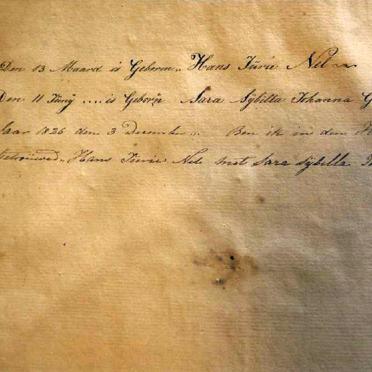 Den 13 Maard is Geboren.. Hans Jurie Nel
Den 11 Juny ....is Geboren Sara Sybilla Johanna G
Jaar 1826 den 3 December... Ben ik in den H
Getrouwed.. Hans Jurie Nel met Sara Sybilla